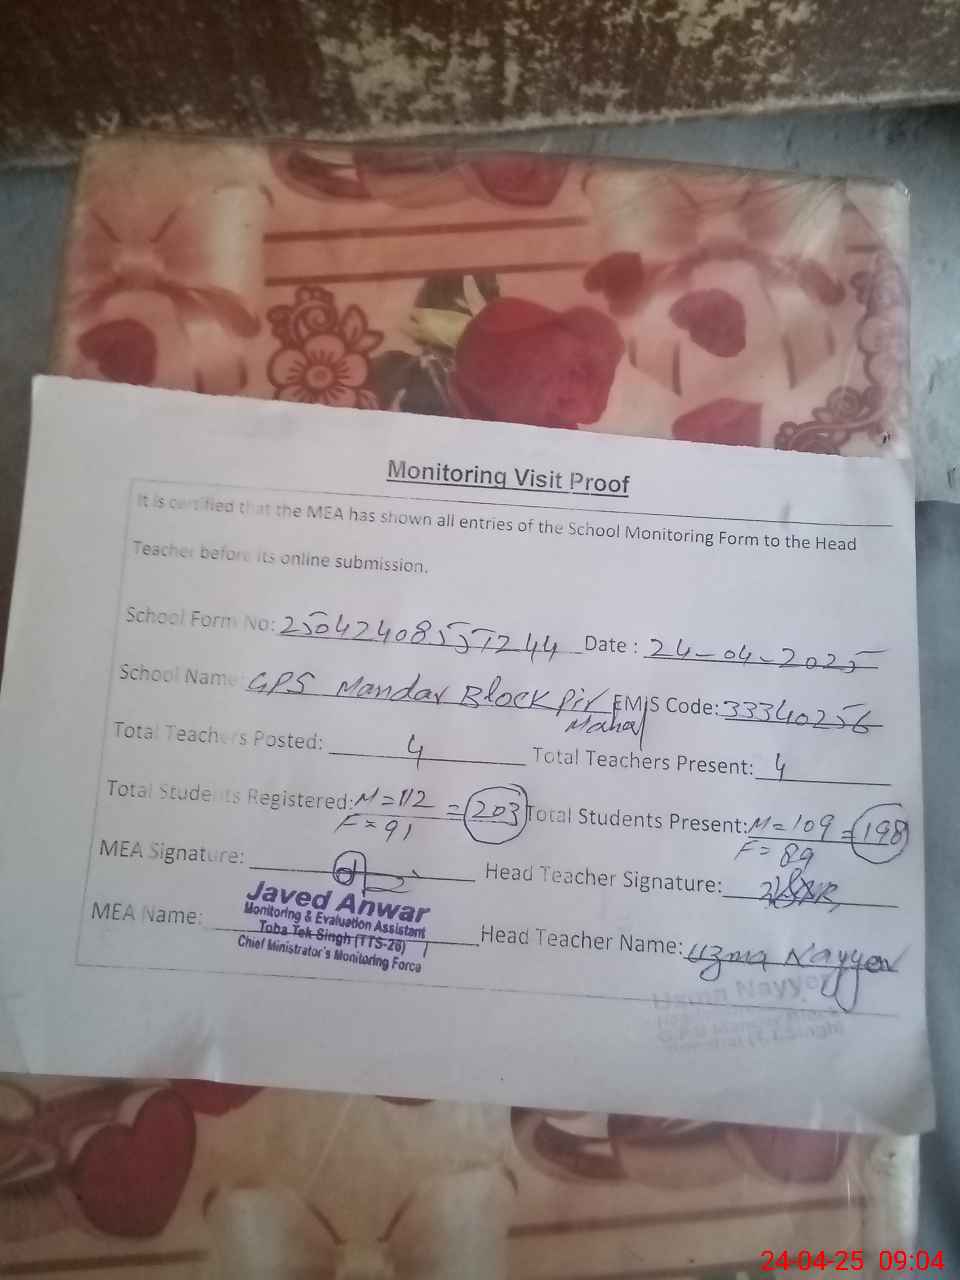 Monitoring Visit Proof
It is certified that the MEA has shown all entries of the School Monitoring Form to the Head
Teacher before its online submission.
School Form No: 25042408557244 Date : 24-04-2025
School Name: GPS Mandar Block Pir Mahal EMIS Code: 33340256
Total Teachers Posted: 4 Total Teachers Present: 4
Total Students Registered: M=112 F=91 = 203 Total Students Present: M=109 F=89 = 198
MEA Signature: Head Teacher Signature:
MEA Name: Head Teacher Name: Uzma Nayyer
Javed Anwar
Monitoring & Evaluation Assistant
Toba Tek Singh (TTS-26)
Chief Ministrator's Monitoring Force
Uzma Nayyer
24-04-25 09:04